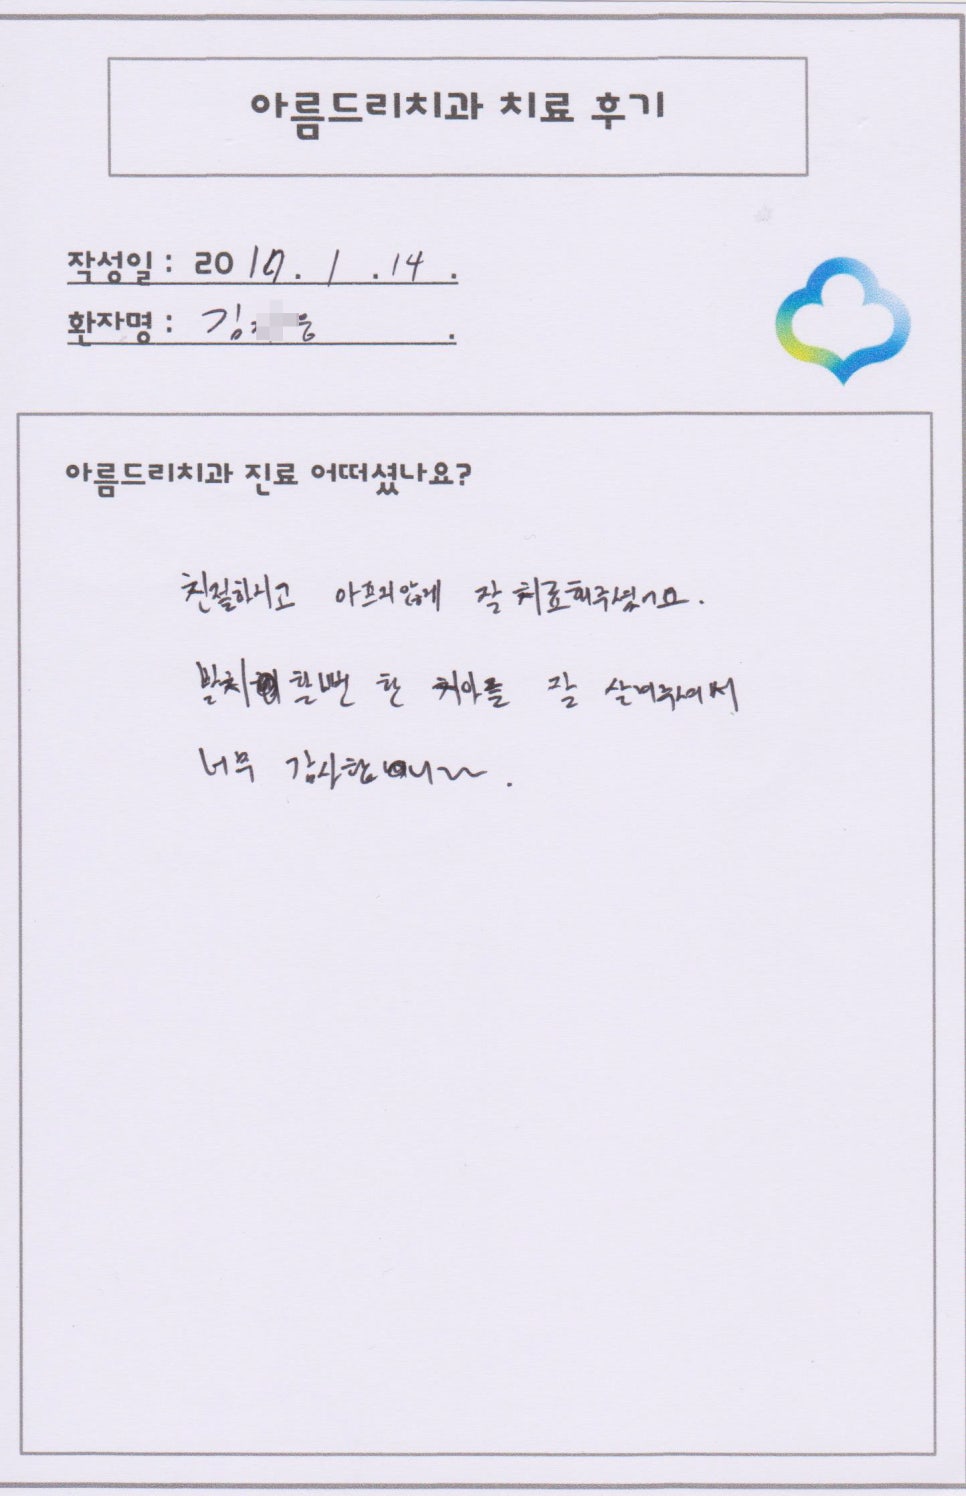 아름드리치과 치료 후기
작성일 : 2017. 1 .14 .
환자명 : 김 웅 .
아름드리치과 진료 어떠셨나요?
친절하시고 아프지않게 잘 치료해주셨어요.
발치 할뻔 한 치아를 잘 살려주셔서
너무 감사합니다~.